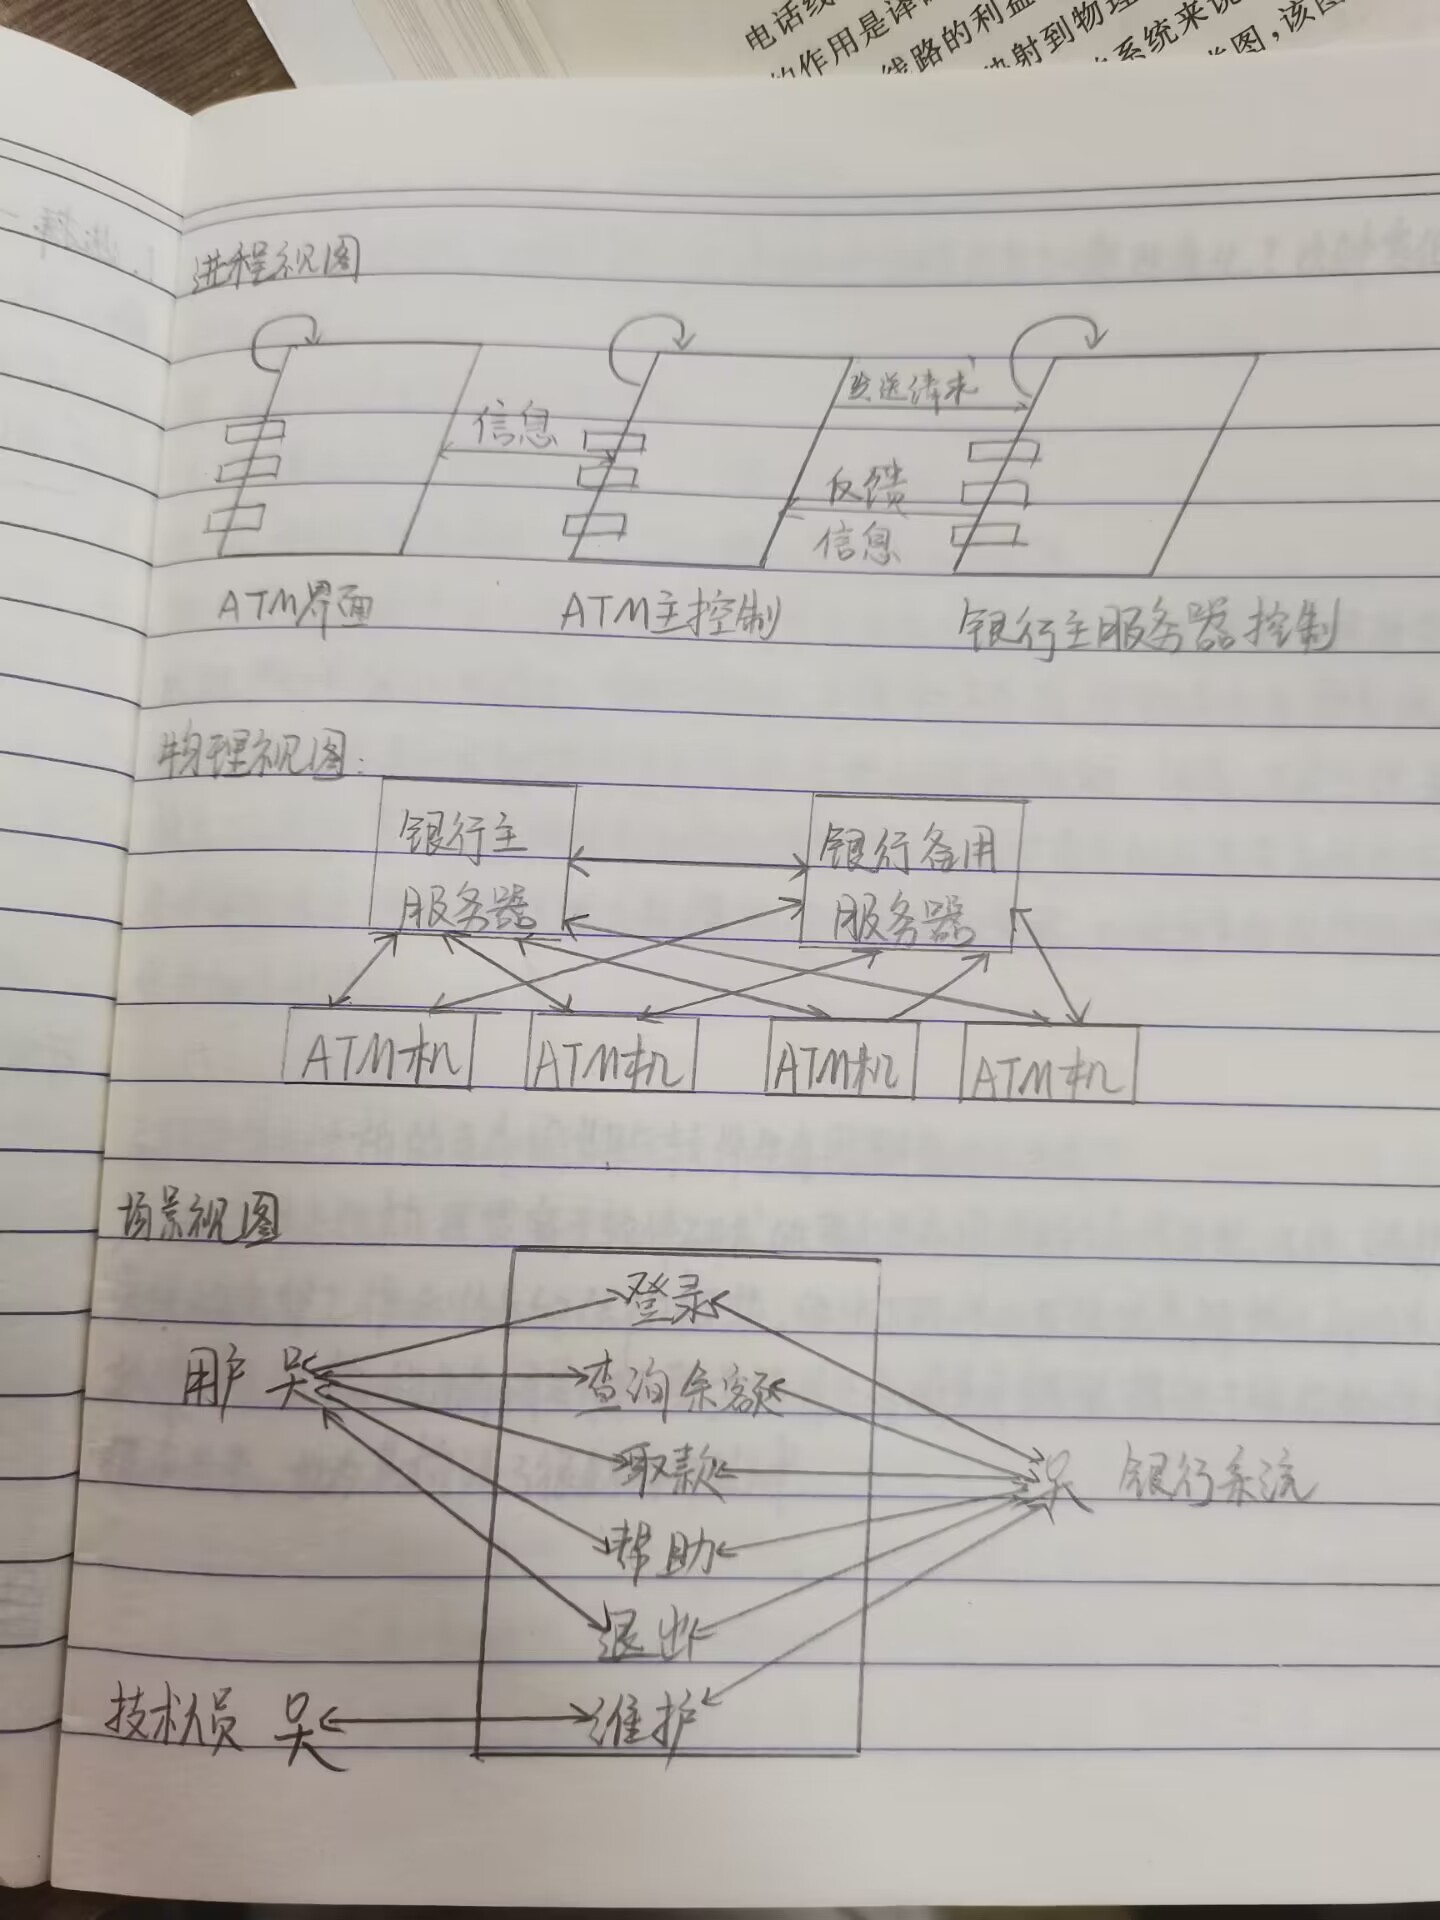 电话线
的作用是译
线路的利益
映射到物理
系统来说
图,该图
进程视图
信息
发送请求
反馈
信息
ATM界面
ATM主控制
银行主服务器控制
物理视图:
银行主
服务器
银行备用
服务器
ATM机
ATM机
ATM机
ATM机
场景视图
登录
用户
查询余额
取款
银行系统
帮助
退出
技术人员
维护